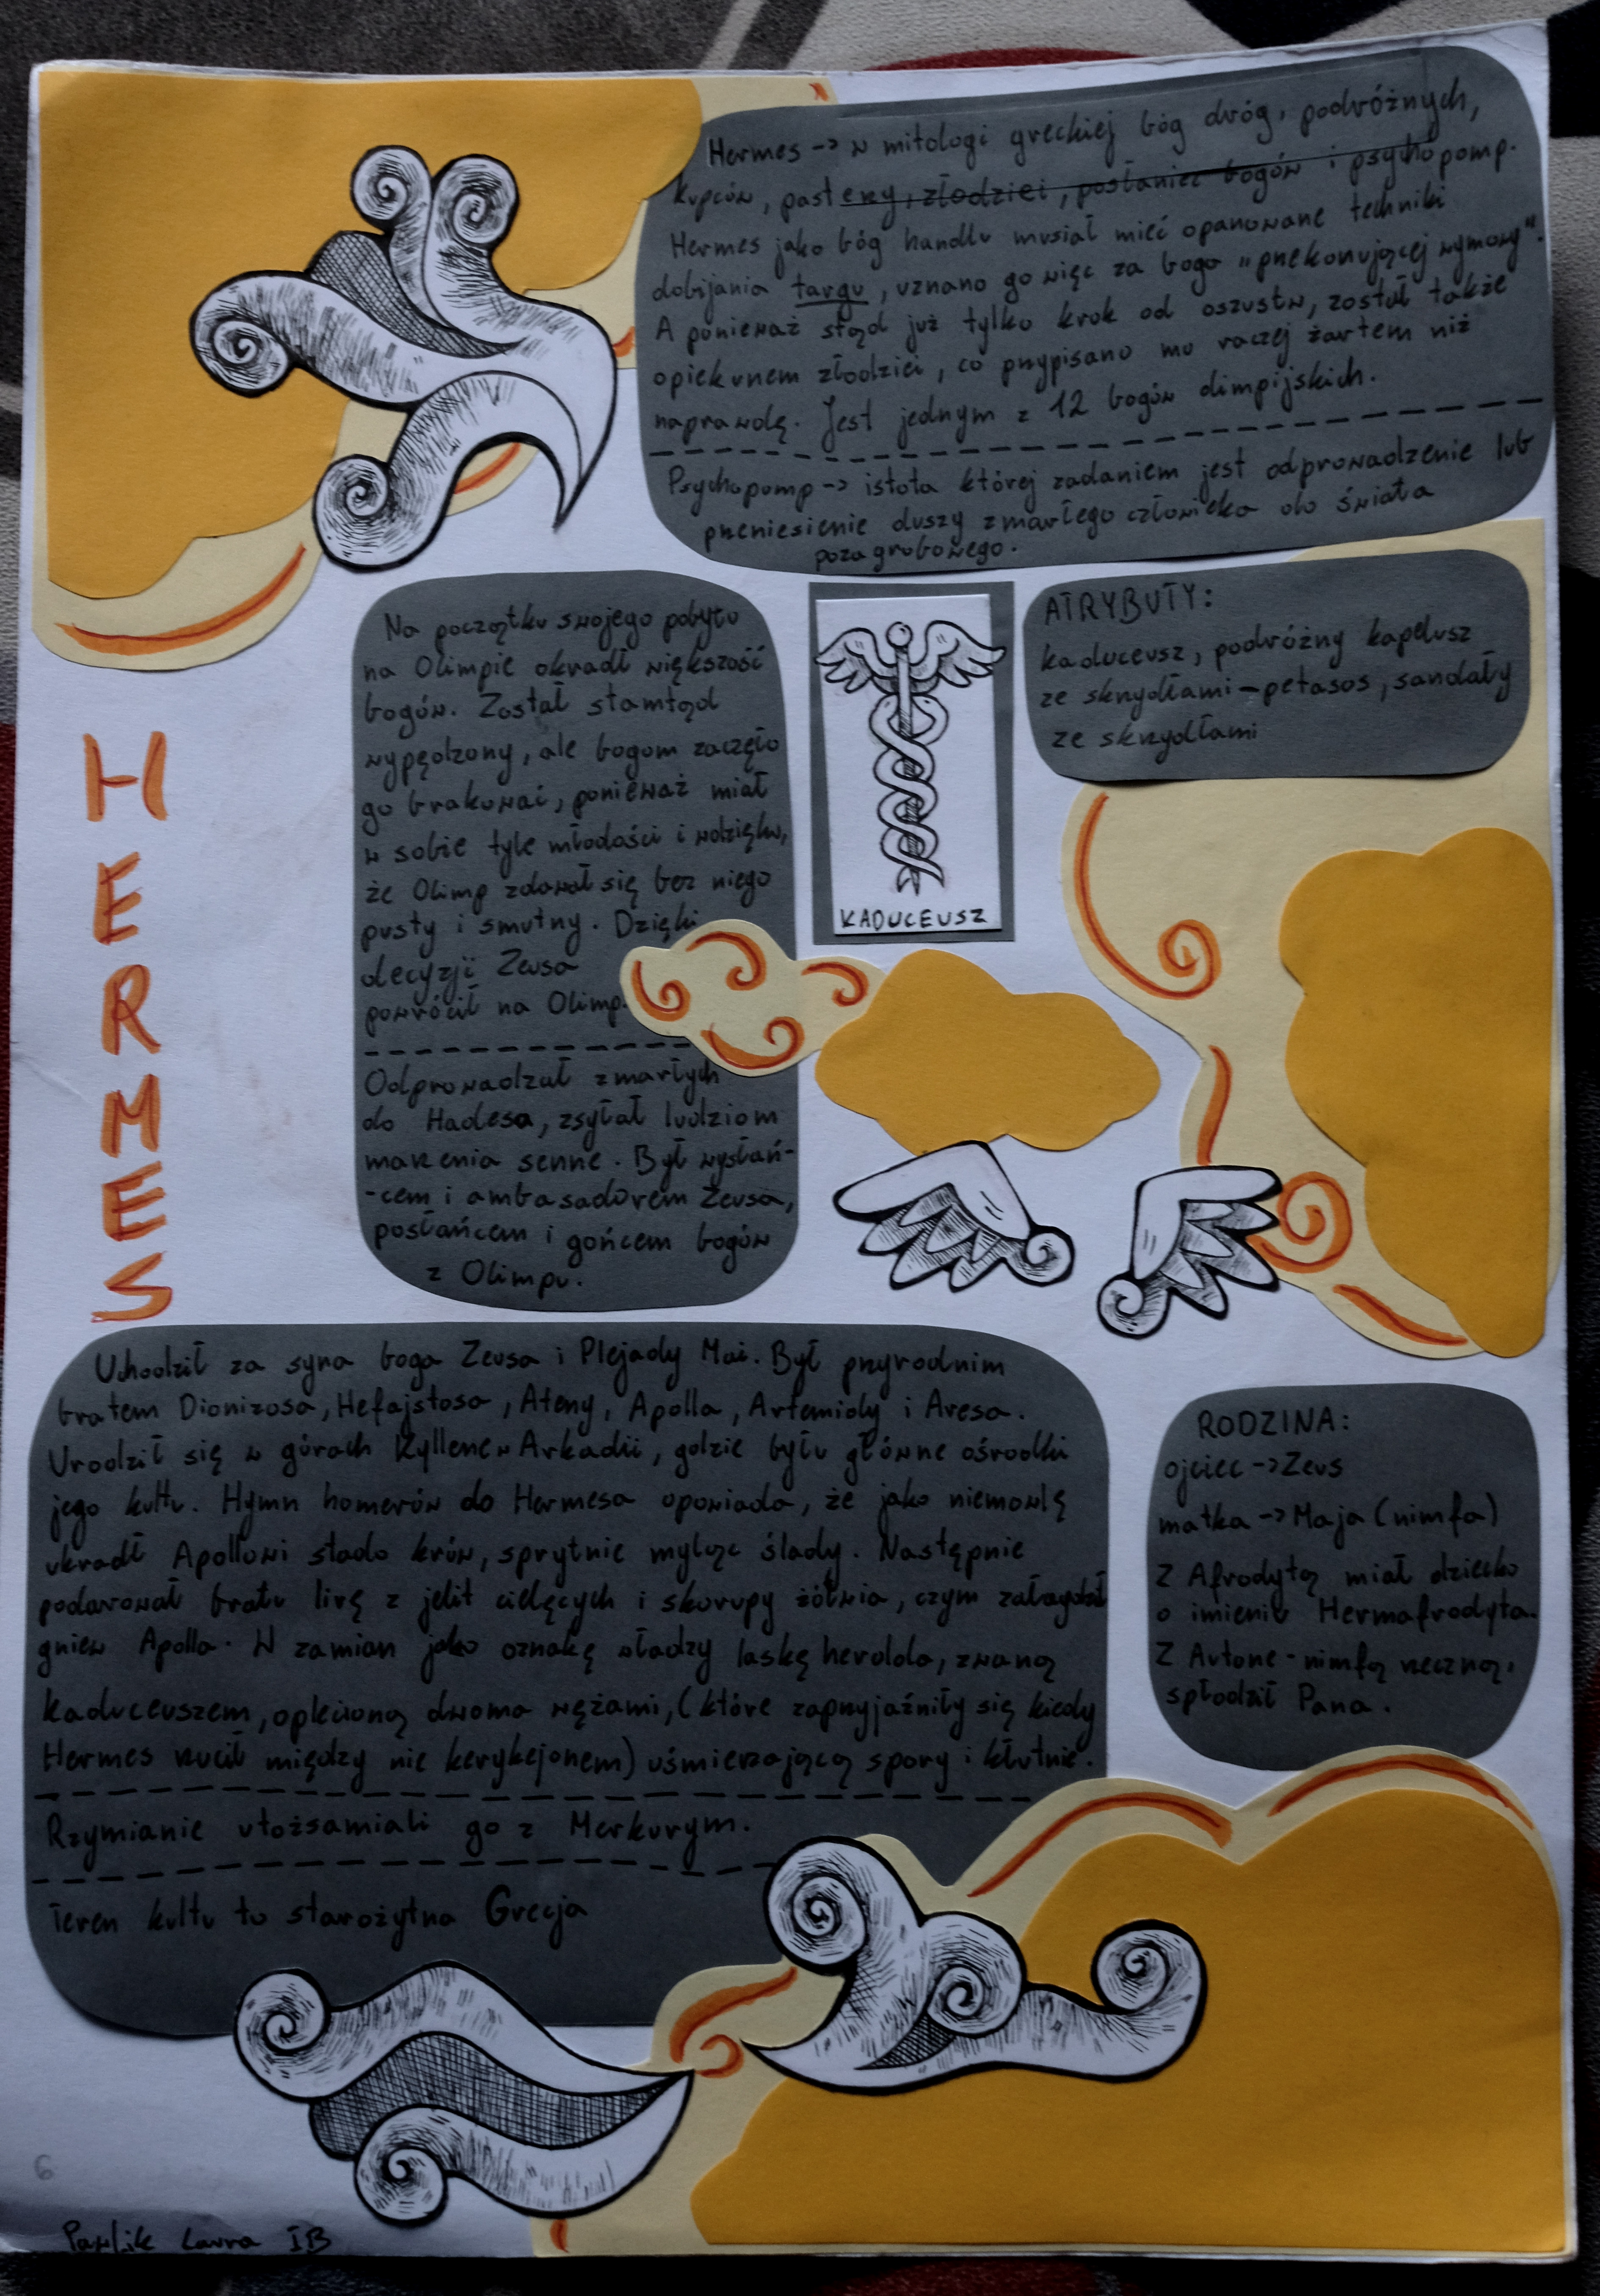 Hermes -> w mitologi greckiej bóg dróg, podróżnych,
kupców, pasterzy, złodziei, posłaniec bogów i psychopomp.
Hermes jako bóg handlu musiał mieć opanowane techniki
dobijania targu, uznano go więc za boga "przekonującej wymowy".
A ponieważ stąd już tylko krok od oszustw, został także
opiekunem złodziei, co przypisano mu raczej żartem niż
naprawdę. Jest jednym z 12 bogów olimpijskich.
Psychopomp -> istota której zadaniem jest odprowadzenie lub
przeniesienie duszy zmarłego człowieka do świata
pozagrobowego.
Na początku swojego pobytu
na Olimpie okradł większość
bogów. Został stamtąd
wypędzony, ale bogom zaczęło
go brakować, ponieważ miał
w sobie tyle młodości i wdzięku,
że Olimp zdawał się bez niego
pusty i smutny. Dzięki
decyzji Zeusa
powrócił na Olimp.
Odprowadzał zmarłych
do Hadesa, zsyłał ludziom
marzenia senne. Był wysłań-
-cem i ambasadorem Zeusa,
posłańcem i gońcem bogów
z Olimpu.
KADUCEUSZ
ATRYBUTY:
kaduceusz, podróżny kapelusz
ze skrzydłami - petasos, sandały
ze skrzydłami
HERMES
Uchodził za syna boga Zeusa i Plejady Mai. Był przyrodnim
bratem Dionizosa, Hefajstosa, Ateny, Apolla, Artemidy i Aresa.
Urodził się w górach Kyllene w Arkadii, gdzie były główne ośrodki
jego kultu. Hymn homerów do Hermesa opowiada, że jako niemowlę
ukradł Apollowi stado krów, sprytnie myląc ślady. Następnie
podarował bratu lirę z jelit cielęcych i skorupy żółwia, czym załagodził
gniew Apolla. W zamian jako oznakę władzy laskę herolda, zwaną
kaduceuszem, oplecioną dwoma wężami, (które zaprzyjaźniły się kiedy
Hermes rzucił między nie kerykejonem) uśmierzającą spory i kłutnie.
Rzymianie utożsamiali go z Merkurym.
Teren kultu to starożytna Grecja
RODZINA:
ojciec -> Zeus
matka -> Maja (nimfa)
Z Afrodytą miał dziecko
o imieniu Hermafrodyta.
Z Autone - nimfą rzeczną,
spłodził Pana.
6
Pawlik Laura IB